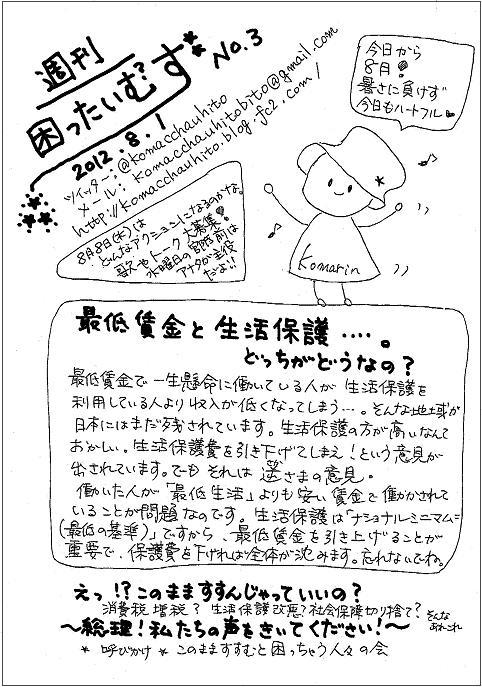 週刊
困ったいむず
No.3
2012.8.1
ツイッター:@komacchauhito
メール:komacchauhitobito@gmail.com
http://komacchauhito.blog.fc2.com/
今日から
8月!
暑さに負けず
今日もハートフル
8月8日(水)は
どんなアクションになるのかな。
歌やトーク大募集!
水曜日の官邸前は
アナタが主役
だよ!!
Komarin
最低賃金と生活保護・・・・。
どっちがどうなの?
最低賃金で一生懸命に働いている人が生活保護を
利用している人より収入が低くなってしまう…。そんな地域が
日本にはまだ残されています。生活保護の方が高いなんて
おかしい。生活保護費を引き下げてしまえ!という意見が
出されています。でもそれは逆さまの意見。
働いた人が「最低生活」よりも安い賃金で働かされて
いることが問題なのです。生活保護は「ナショナルミニマム=
(最低の基準)」ですから、最低賃金を引き上げることが
重要で、保護費を下げれば全体が沈みます。忘れないでね。
えっ!?このまますすんじゃっていいの?
消費税増税?生活保護改悪?社会保障切り捨て?そんな
あれこれ
〜総理!私たちの声をきいてください!〜
*呼びかけ*このまますすむと困っちゃう人々の会